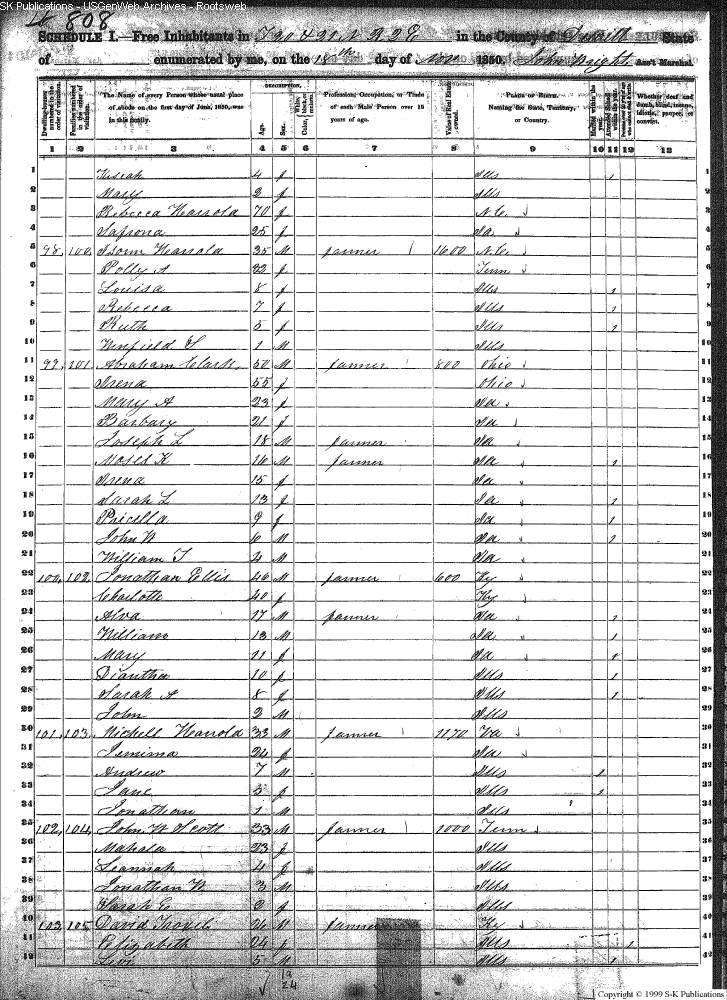 SK Publications - USGenWeb Archives - Rootsweb
808
SCHEDULE I.—Free Inhabitants in T 20 & 21 N R 2 E in the County of Dewitt State
of enumerated by me, on the 18th day of Nov 1850. John Wright Ass't Marshal.
Dwelling-houses numbered in the order of visitation. Families numbered in the order of visitation. The Name of every Person whose usual place of abode on the first day of June, 1850, was in this family. DESCRIPTION. Age. Sex. Color, White, black, or mulatto. Profession, Occupation, or Trade of each Male Person over 15 years of age. Value of Real Estate owned. PLACE OF BIRTH. Naming the State, Territory, or Country. Married within the year. Attended School within the year. Whether deaf and dumb, blind, insane, idiotic, pauper, or convict.
1 2 3 4 5 6 7 8 9 10 11 12 13
1 4 f Ills 1 1
2 Mary 2 f Ills 2
3 Rebecca Harrold 70 f N.C. 3
4 25 f Ia 4
5 98 100 Isom Harrold 35 M farmer 1600 N.C. 5
6 Polly A 22 f Tenn 6
7 Louisa 8 f Ills 1 7
8 Rebecca 7 f Ills 1 8
9 Ruth 5 f Ills 1 9
10 Winfield S 1 M Ills 10
11 99 101 Abraham Clark 50 M farmer 800 Ohio 11
12 Irena 55 f Ohio 12
13 Mary A 23 f Ia 13
14 Barbary 21 f Ia 14
15 Joseph L 18 M farmer Ia 15
16 Moses K 16 M farmer Ia 1 16
17 Irena 15 f Ia 17
18 Sarah L 13 f Ia 1 18
19 Pricella 9 f Ia 1 19
20 John W 6 M Ia 1 20
21 William T 4 M Ia 21
22 100 102 Jonathan Ellis 46 M farmer 600 Ky 22
23 Charlotte 40 f Ky 23
24 Alva 17 M farmer Ia 1 24
25 William 13 M Ia 1 25
26 Mary 11 f Ia 1 26
27 Diantha 10 f Ills 1 27
28 Sarah A 8 f Ills 1 28
29 John 2 M Ills 29
30 101 103 Michell Harrold 33 M farmer 1170 Va 30
31 Jemima 24 f Ia 31
32 Andrew 7 M Ills 1 32
33 Jane 5 f Ills 1 33
34 Jonathan 1 M Ills 34
35 102 104 John W Scott 33 M farmer 1000 Tenn 35
36 Mahala 23 f Ills 36
37 4 f Ills 37
38 Jonathan W 3 M Ills 38
39 Sarah E f Ills 39
40 103 105 David 26 M farmer Ky 40
41 Elizabeth 24 f Ills 1 41
42 Levi 5 M Ills 1 42
18
24
Copyright © 1999 S-K Publications